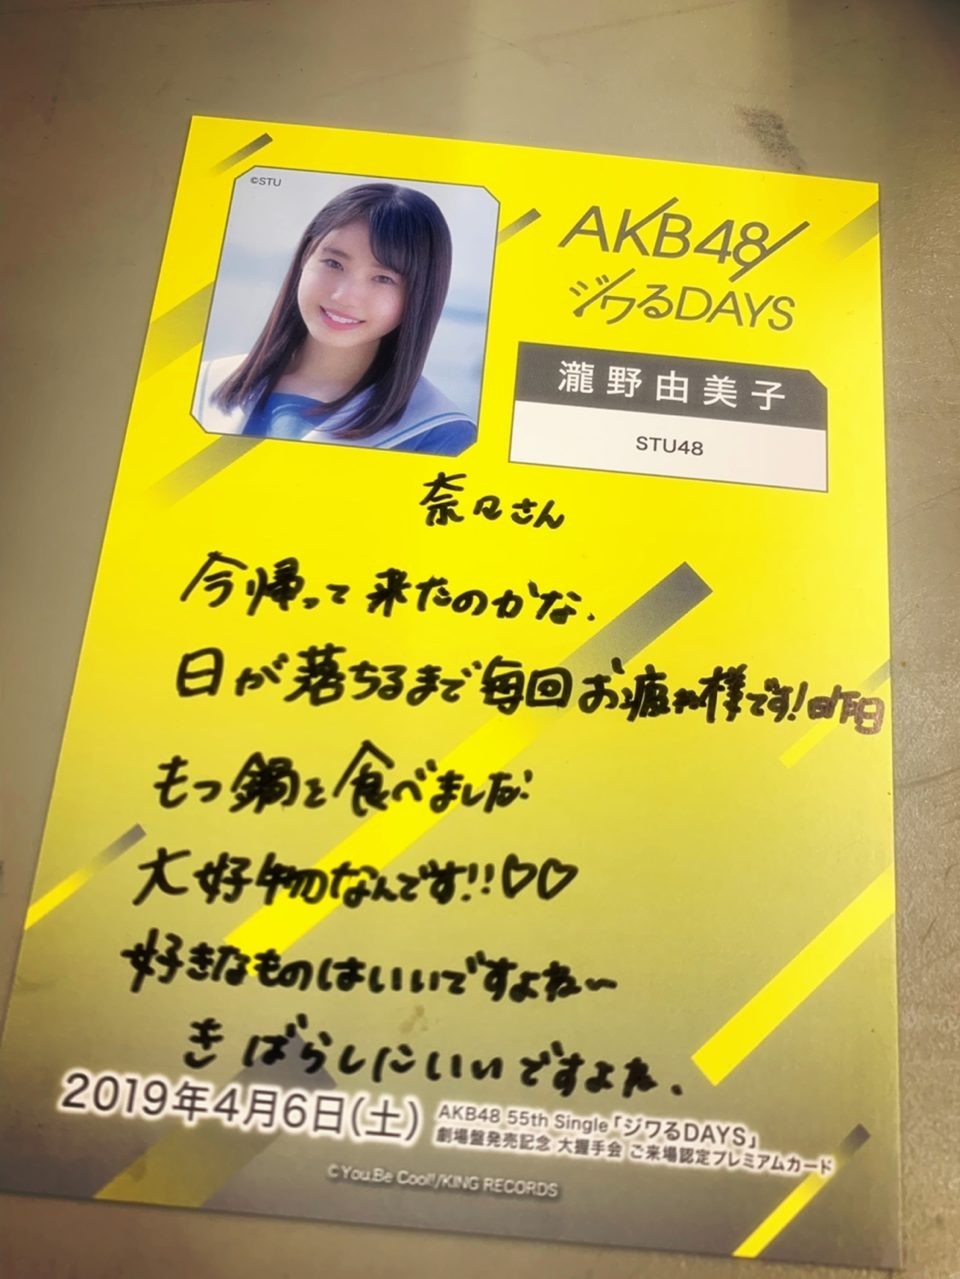 ©STU
AKB48
ジワるDAYS
瀧野由美子
STU48
奈々さん
今帰って来たのかな.
日が落ちるまで毎回お疲れ様です!昨日
もつ鍋を食べました!
大好物なんです!!♡♡
好きなものはいいですよね〜
きばらしにいいですよね.
2019年4月6日(土)
AKB48 55th Single「ジワるDAYS」
劇場盤発売記念 大握手会 ご来場認定プレミアムカード
©You,Be Cool!/KING RECORDS